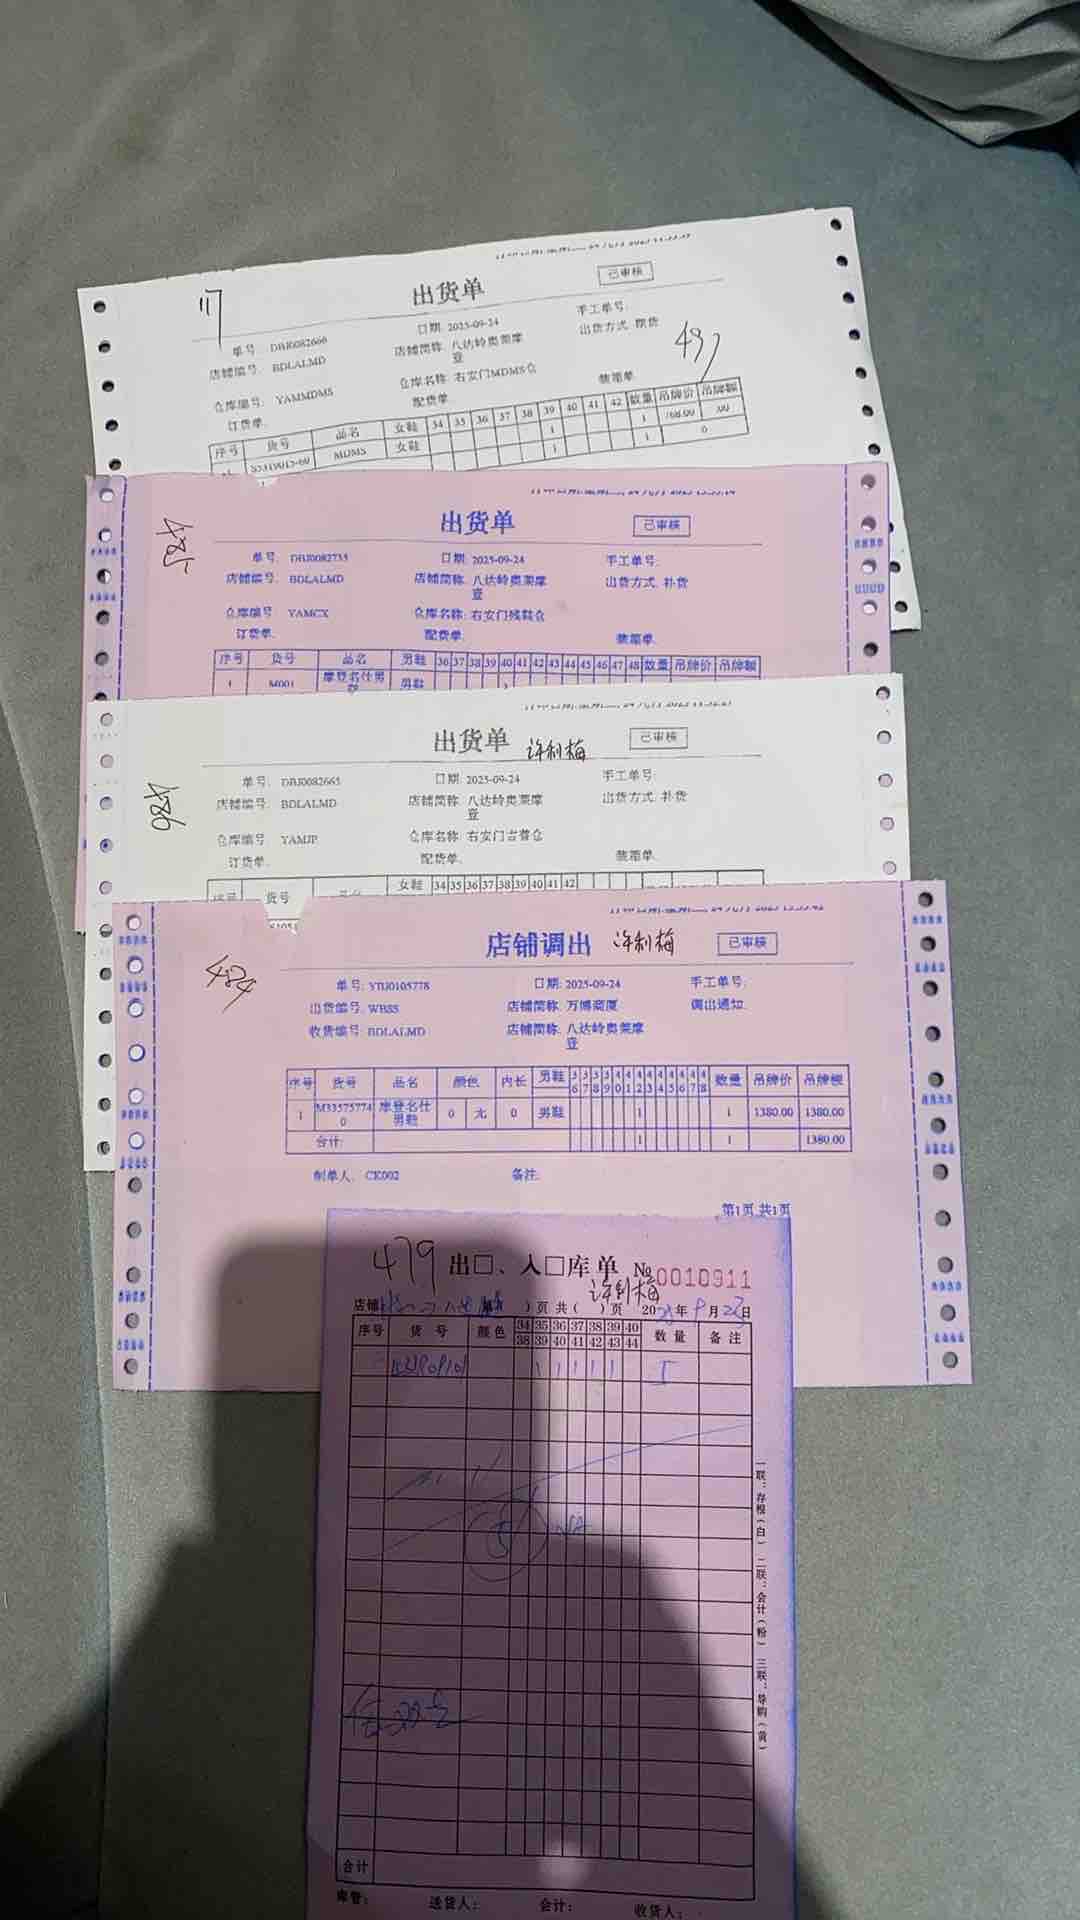 出货单
已审核
117
日期: 2025-09-24
手工单号:
单号: DBJ0082666
店铺简称: 八达岭奥莱摩登
出货方式:
店铺编号: BDLALMD
仓库名称: 右安门MDMS仓
仓库编号: YAMMDMS
配货单:
装箱单:
订货单:
序号 货号 品名 女鞋 34 35 36 37 38 39 40 41 42 数量 吊牌价 吊牌额
MDMS 女鞋 1 1 .00
1 1 0
出货单
已审核
485
单号: DBJ0082735
日期: 2025-09-24
手工单号:
店铺编号: BDLALMD
店铺简称: 八达岭奥莱摩登
出货方式: 补货
仓库编号: YAMCX
仓库名称: 右安门残鞋仓
订货单:
配货单:
装箱单:
序号 货号 品名 男鞋 36 37 38 39 40 41 42 43 44 45 46 47 48 数量 吊牌价 吊牌额
1 M001 摩登名仕男鞋 男鞋
出货单
许利梅
已审核
486
单号: DBJ0082665
日期: 2025-09-24
手工单号:
店铺编号: BDLALMD
店铺简称: 八达岭奥莱摩登
出货方式: 补货
仓库编号: YAMJP
仓库名称: 右安门吉普仓
订货单:
配货单:
装箱单:
序号 货号 品名 女鞋 34 35 36 37 38 39 40 41 42
店铺调出
许利梅
已审核
484
单号: YDJ0105778
日期: 2025-09-24
手工单号:
出货编号: WBSS
店铺简称: 万博商厦
调出通知:
收货编号: BDLALMD
店铺简称: 八达岭奥莱摩登
序号 货号 品名 颜色 内长 男鞋 36 37 38 39 40 41 42 43 44 45 46 47 48 数量 吊牌价 吊牌额
1 M335757740 摩登名仕男鞋 0 无 0 男鞋 1 1 1380.00 1380.00
合计: 1 1 1380.00
制单人: CK002
备注:
第1页 共1页
479
出□、入□库单
№0010911
许利梅
店铺
第( )页 共( )页 2025年9月23日
序号 货号 颜色 34 35 36 37 38 39 40 数量 备注
38 39 40 41 42 43 44
1 1 1 1 1
5
一联:存根(白) 二联:会计(粉) 三联:导购(黄)
合计
库管: 送货人: 会计: 收货人: